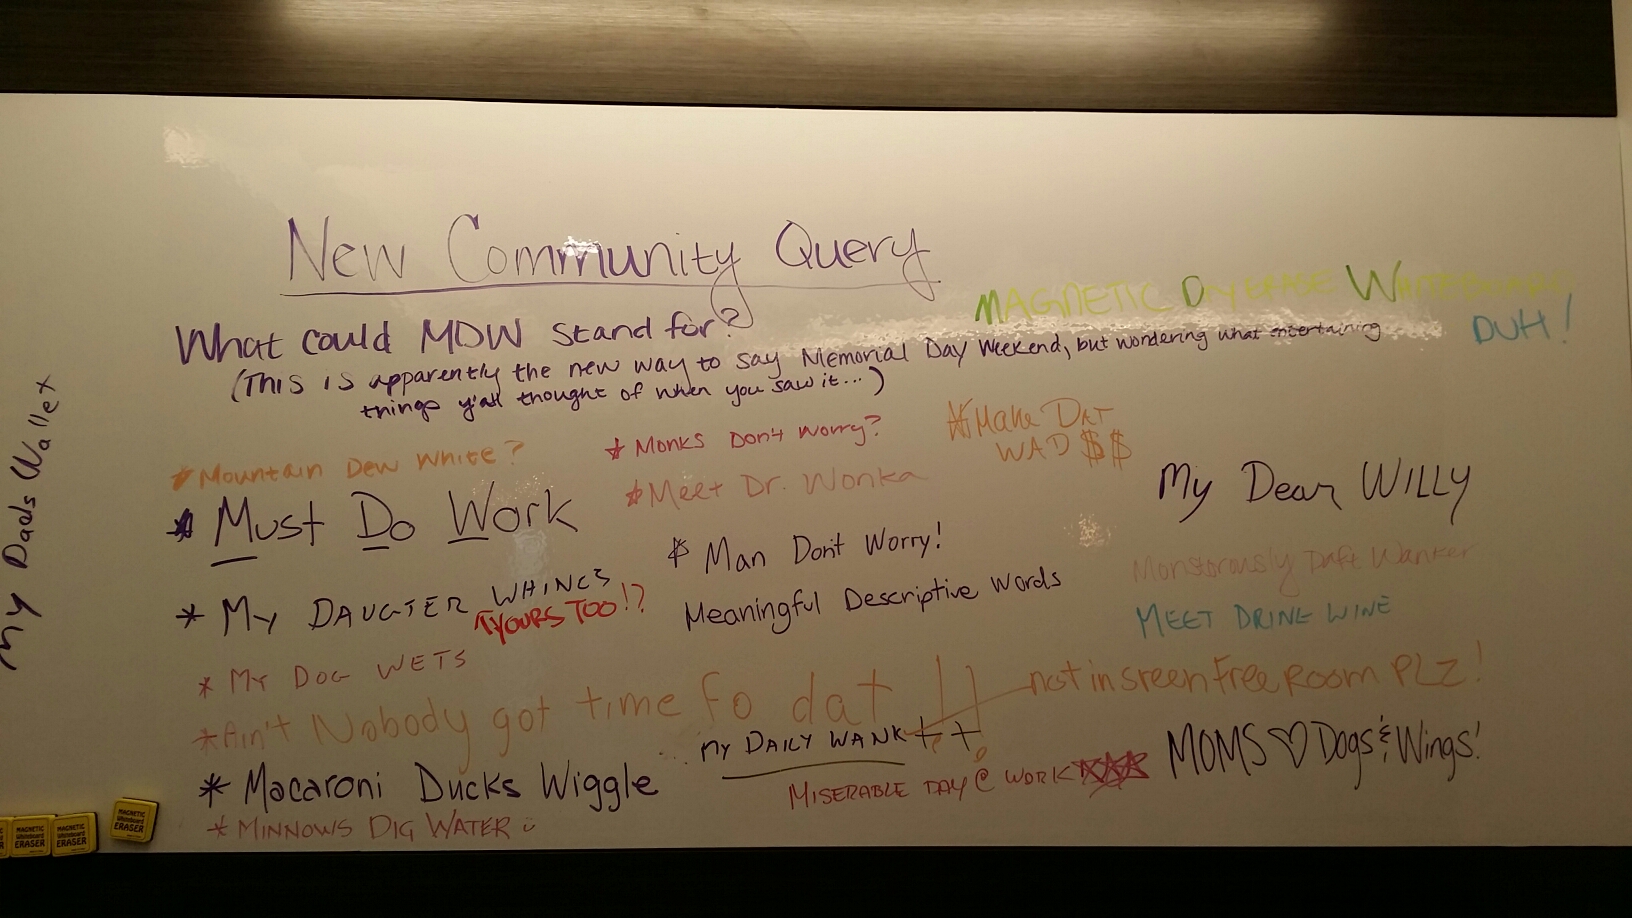 New Community Query
MAGNETIC DRY ERASE WHITEBOARD
DUH!
What could MDW stand for?
(This is apparently the new way to say Memorial Day Weekend, but wondering what entertaining
things y'all thought of when you saw it...)
My Dads Wallet
*Mountain Dew White?
*Monks Don't Worry?
*Make Dat
WAD $$
*Meet Dr. Wonka
My Dear WILLY
* Must Do Work
* Man Don't Worry!
Monstorously Daft Wanker
* MY DAUGTER WHINES
YOURS TOO!?
Meaningful Descriptive Words
MEET DRINK WINE
* MY DOG WETS
*Ain't Nobody got time fo dat !!
not in sreen Free Room PLZ!
MY DAILY WANK
* Macaroni Ducks Wiggle
MISERABLE DAY @ WORK
MOMS ♡ Dogs & Wings!
* MINNOWS DIG WATER
MAGNETIC
Whiteboard
ERASER
MAGNETIC
Whiteboard
ERASER
MAGNETIC
Whiteboard
ERASER